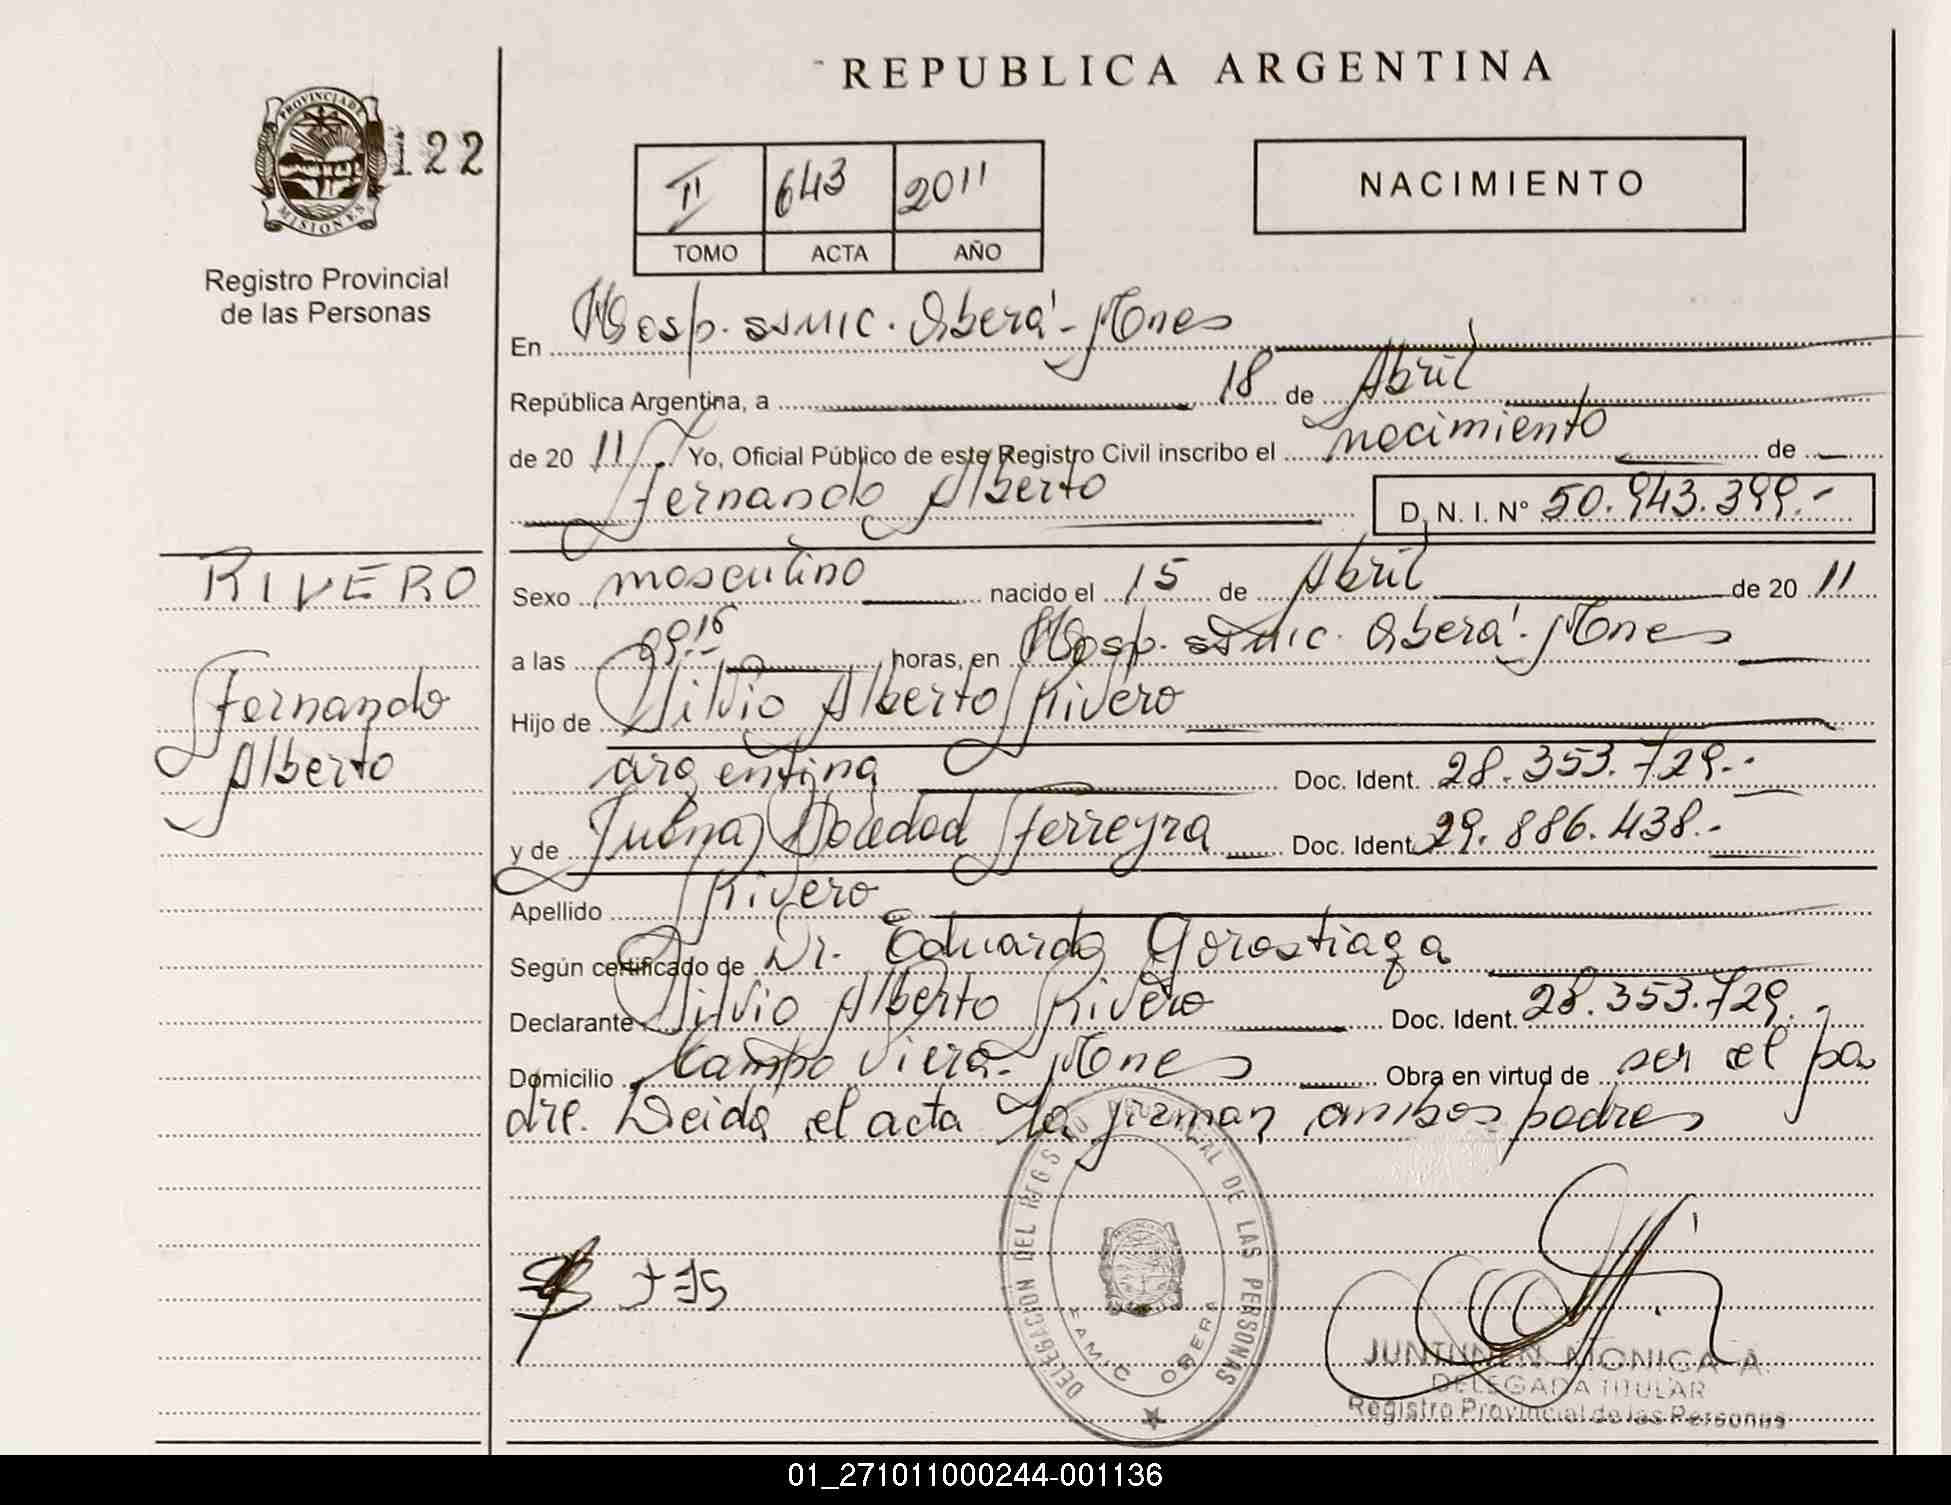 REPUBLICA ARGENTINA
PROVINCIA DE
MISIONES
122
Registro Provincial
de las Personas
II 643 2011
TOMO ACTA AÑO
NACIMIENTO
En Hosp. SSMIC. Oberá - Mnes
República Argentina, a 18 de Abril
de 20 11. Yo, Oficial Público de este Registro Civil inscribo el nacimiento de
Fernando Alberto
D. N. I. Nº 50.943.399.-
RIVERO
Fernando
Alberto
Sexo masculino nacido el 15 de Abril de 20 11
a las 09:16 horas, en Hosp. SSMIC. Oberá - Mnes
Hijo de Silvio Alberto Rivero
argentina Doc. Ident. 28.353.729.-
y de Soledad Ferreyra Doc. Ident. 29.886.438.-
Apellido Rivero
Según certificado de Dr. Eduardo Gorostiaga
Declarante Silvio Alberto Rivero Doc. Ident. 28.353.729.-
Domicilio Campo Viera - Mnes Obra en virtud de ser el pa
dre. Leída el acta la firman ambos padres
DELEGACION DEL REGISTRO PROVINCIAL DE LAS PERSONAS
OBERA
JUNTUNEN MONICA A.
DELEGADA TITULAR
Registro Provincial de las Personas
01_271011000244-001136